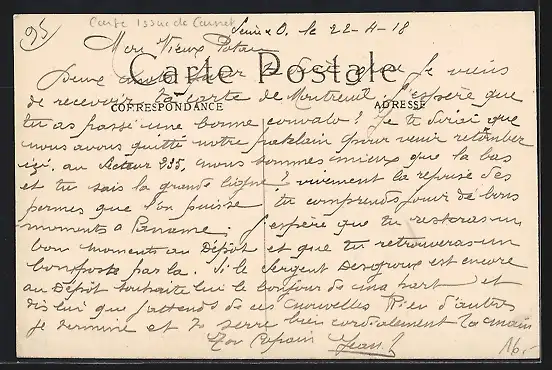 95
Carte Issue de Carnet
Seine & O. le 22-4-18
Mon Vieux Poteau
Carte Postale
Deux mots pour te dire que Je viens
de recevoir ta carte de Montreuil. J'espère que
CORRESPONDANCE ADRESSE
tu as passé une bonne convalo? Je te dirai que
nous avons quitté notre patelain pour venir retomber
içi. au secteur 235, nous sommes mieux que la bas
et tu sais la grande ligne? vivement la reprise des
permes que l'on puisse tu comprends jour de bons
moments a Paname. J'espère que tu resteras un
bon moments au Dépôt et que tu retrouveras un
bonposte par la. Si le Sergent Desgroux est encore
au Dépôt souhaite lui le bonjour de ma part et
dis lui que j'attends de ces nouvelles Rien d'autres
Je termine et te serre bien cordialement la main
Ton Copain Jean
16,-